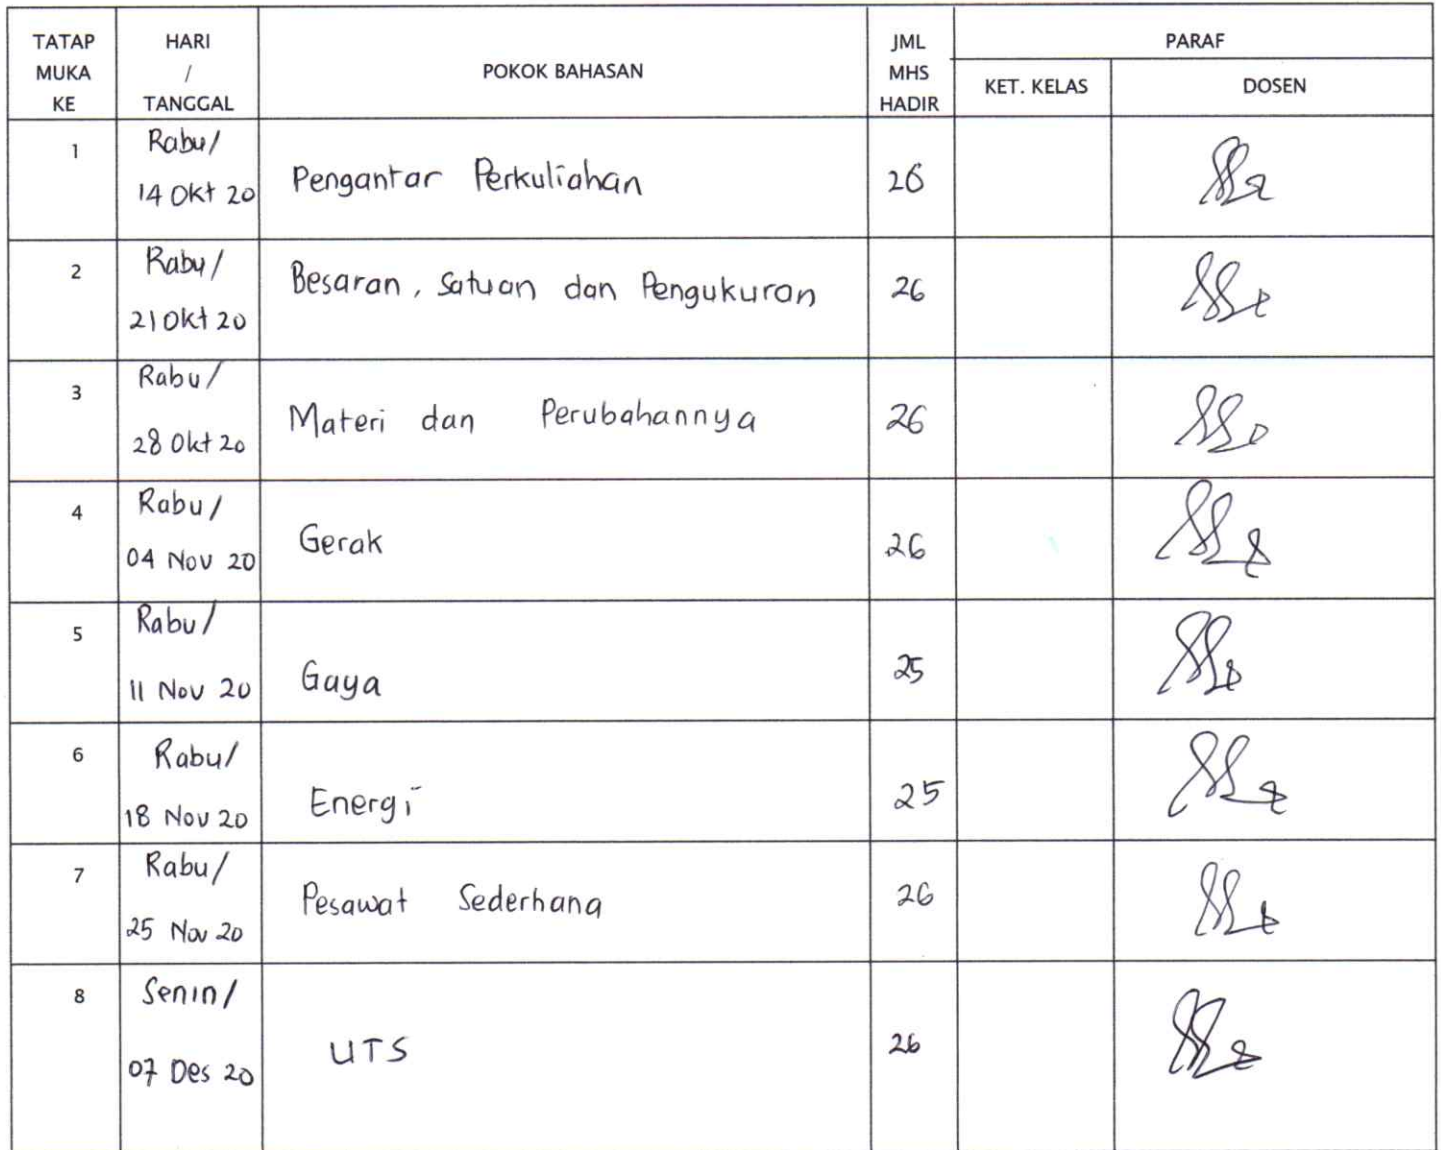 TATAP MUKA KE
HARI / TANGGAL
POKOK BAHASAN
JML MHS HADIR
PARAF
KET. KELAS
DOSEN
1
Rabu/
14 Okt 20
Pengantar Perkuliahan
26
2
Rabu/
21 Okt 20
Besaran, Satuan dan Pengukuran
26
3
Rabu/
28 Okt 20
Materi dan Perubahannya
26
4
Rabu/
04 Nov 20
Gerak
26
5
Rabu/
11 Nov 20
Gaya
25
6
Rabu/
18 Nov 20
Energi
25
7
Rabu/
25 Nov 20
Pesawat Sederhana
26
8
Senin/
07 Des 20
UTS
26